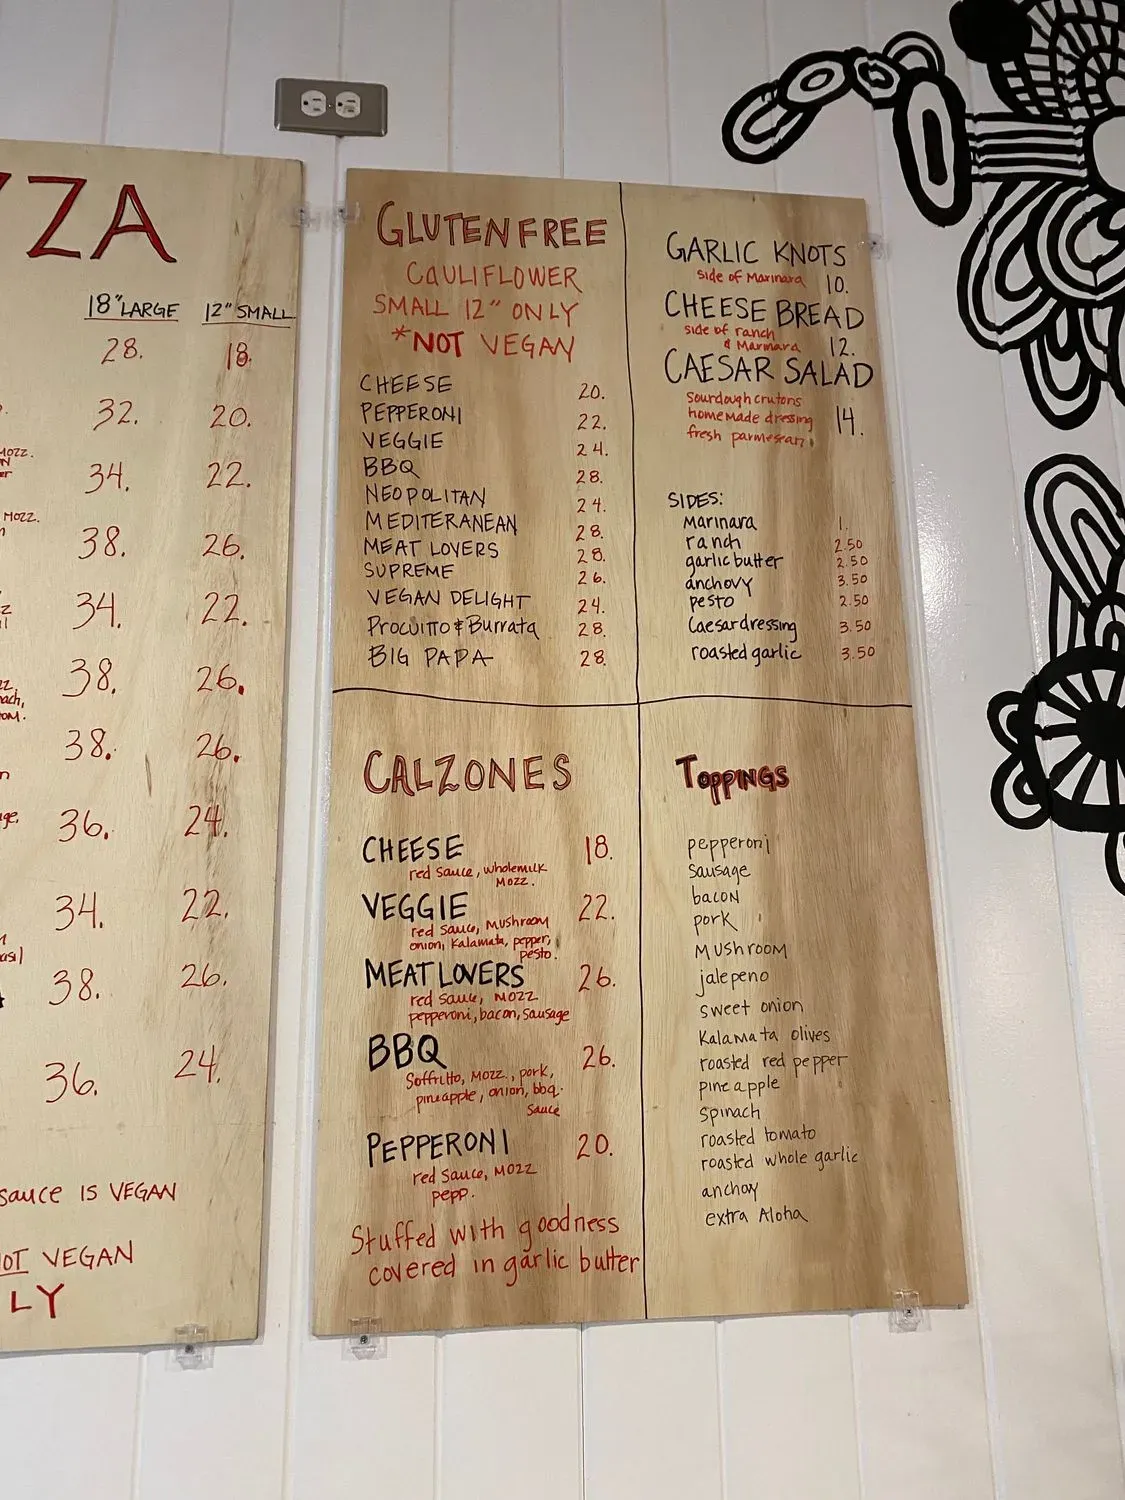 ZZA
18" LARGE 12" SMALL
28. 18.
32. 20.
MOZZ.
34. 22.
MOZZ.
38. 26.
34. 22.
38. 26.
38. 26.
36. 24.
34. 22.
38. 26.
36. 24.
sauce IS VEGAN
OT VEGAN
LY
GLUTEN FREE
CAULIFLOWER
SMALL 12" ONLY
*NOT VEGAN
CHEESE 20.
PEPPERONI 22.
VEGGIE 24.
BBQ 28.
NEOPOLITAN 24.
MEDITERANEAN 28.
MEAT LOVERS 28.
SUPREME 26.
VEGAN DELIGHT 24.
Procuitto & Burrata 28.
BIG PAPA 28.
GARLIC KNOTS
side of Marinara 10.
CHEESE BREAD
side of ranch
& Marinara 12.
CAESAR SALAD
Sourdough crutons
homemade dressing 14.
fresh parmesean
SIDES:
Marinara 1.
ranch 2.50
garlic butter 2.50
anchovy 3.50
pesto 2.50
Caesar dressing 3.50
roasted garlic 3.50
CALZONES
CHEESE 18.
red sauce, wholemilk
MOZZ.
VEGGIE 22.
red sauce, mushroom
onion, Kalamata, pepper,
pesto.
MEAT LOVERS 26.
red sauce, MOZZ
pepperoni, bacon, sausage
BBQ 26.
Soffritto, MOZZ., pork,
pineapple, onion, bbq.
sauce
PEPPERONI 20.
red sauce, MOZZ
pepp.
Stuffed with goodness
covered in garlic butter
TOPPINGS
pepperoni
sausage
bacon
pork
Mushroom
jalepeno
sweet onion
Kalamata olives
roasted red pepper
pineapple
spinach
roasted tomato
roasted whole garlic
anchoy
extra Aloha